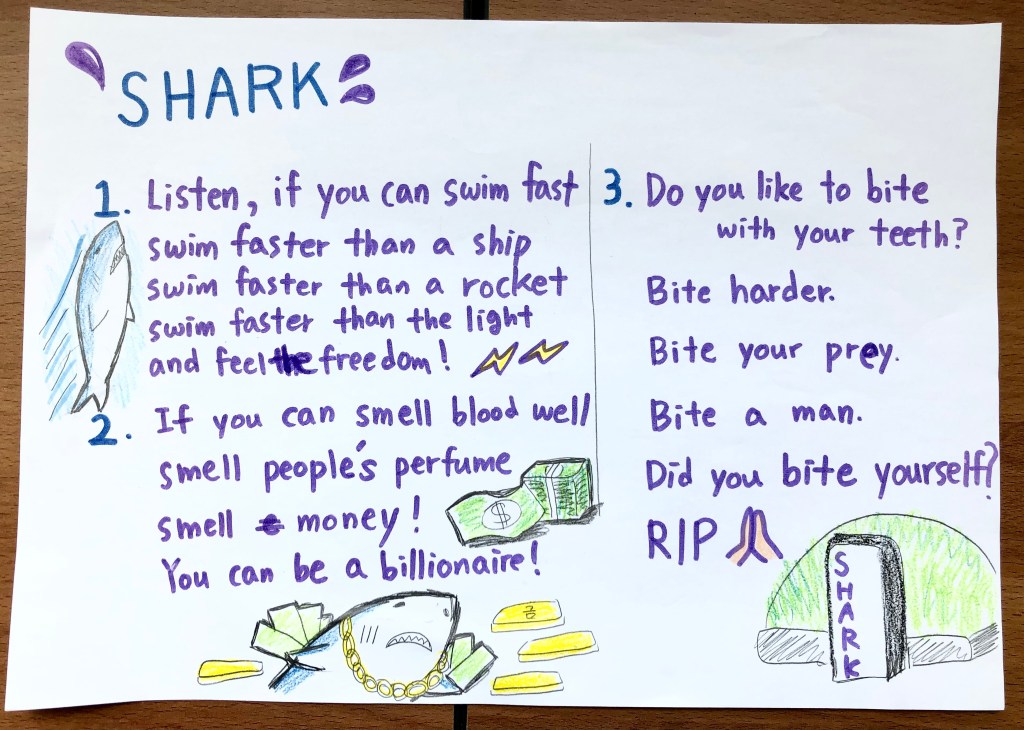 SHARK
1. Listen, if you can swim fast
swim faster than a ship
swim faster than a rocket
swim faster than the light
and feel the freedom!
2. If you can smell blood well
smell people's perfume
smell money!
You can be a billionaire!
3. Do you like to bite
with your teeth?
Bite harder.
Bite your prey.
Bite a man.
Did you bite yourself?
RIP
$
금
SHARK